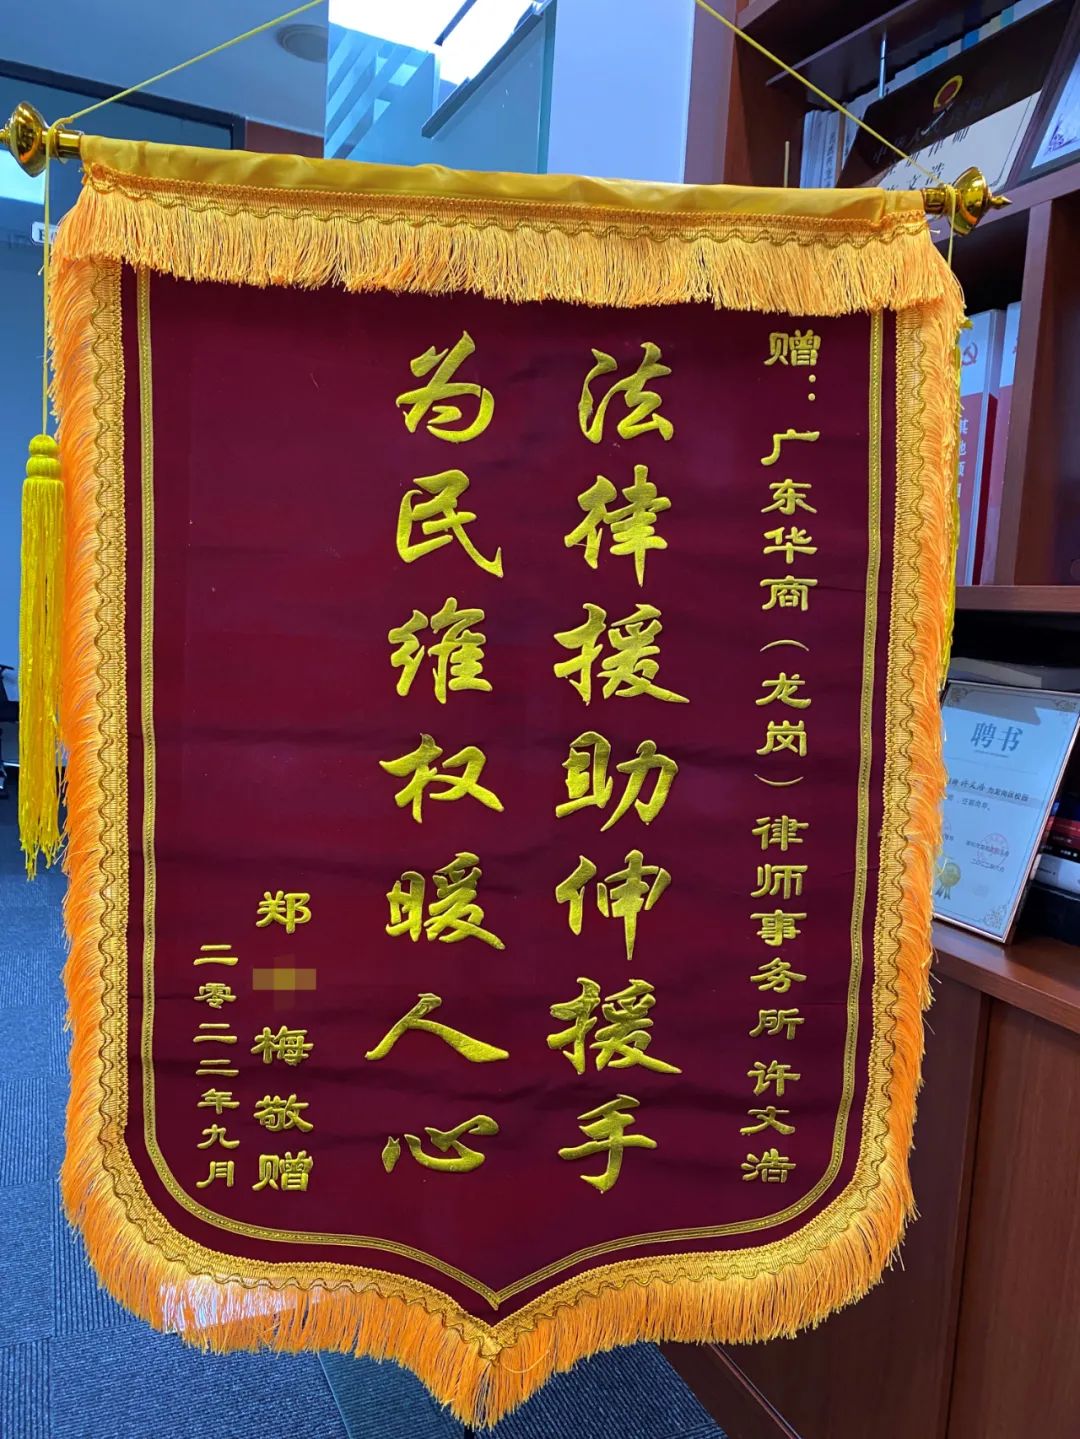 赠：广东华商（龙岗）律师事务所许文浩
法律援助伸援手
为民维权暖人心
郑 梅敬赠
二零二二年九月
聘书